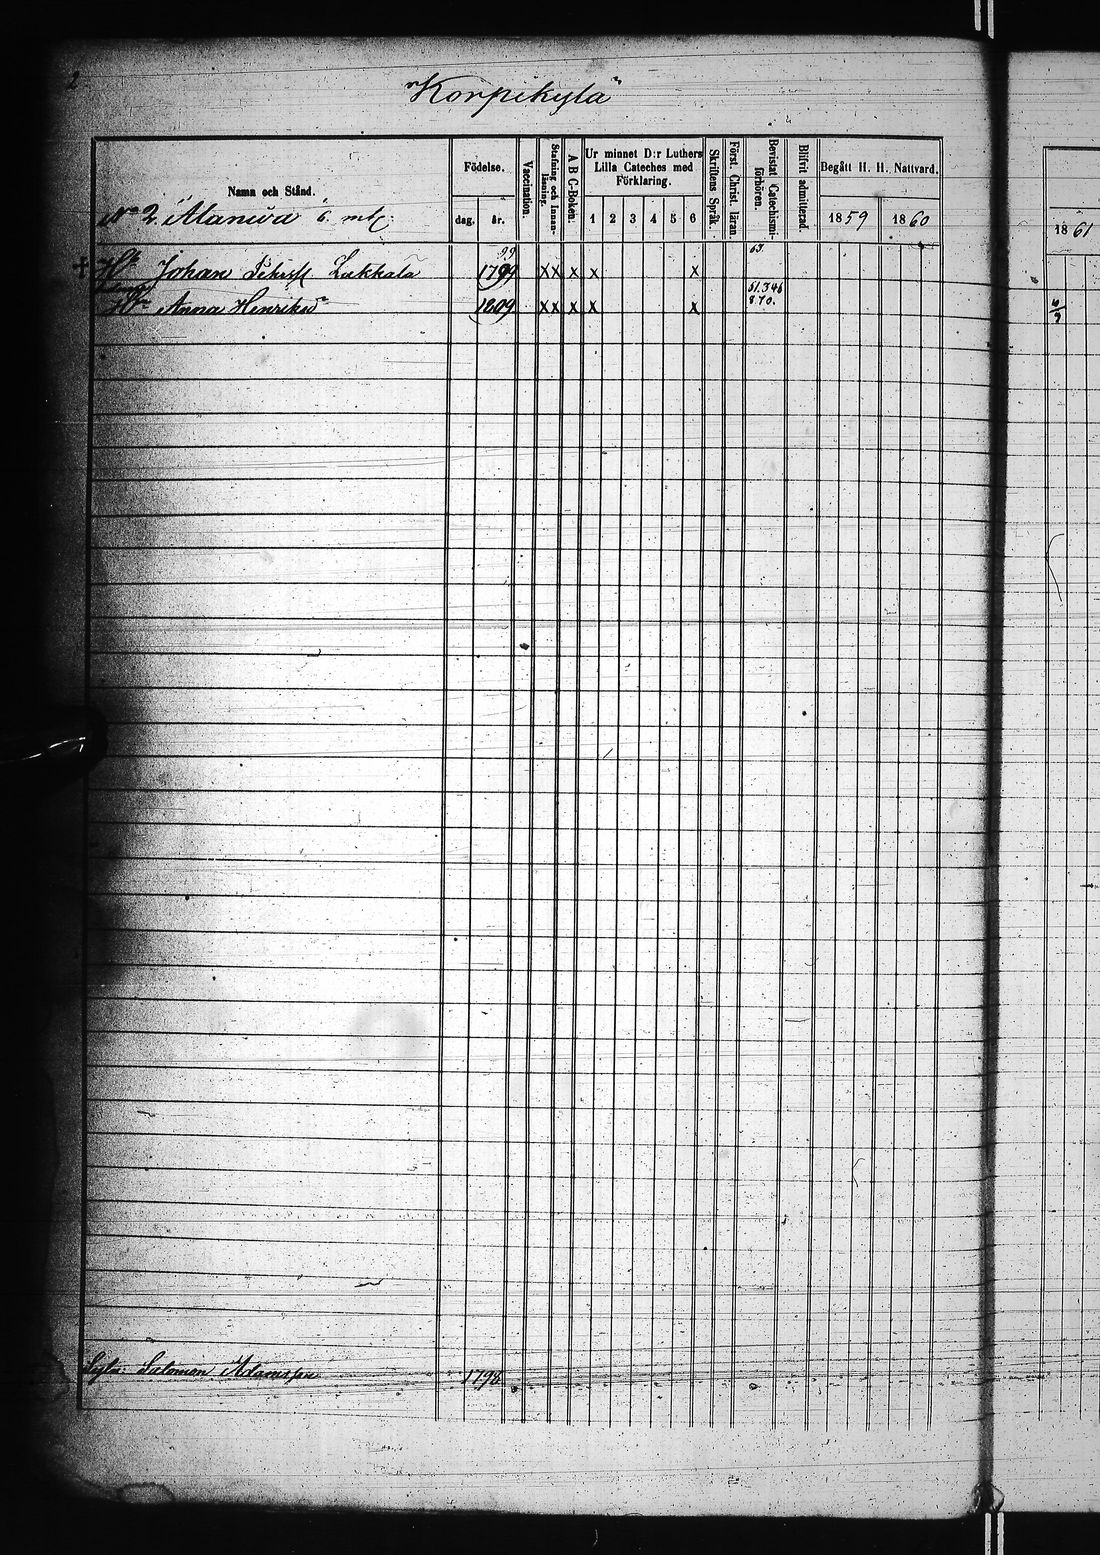 2
Korpikylä
Namn och Stånd.
Födelse.
dag. år.
Vaccination.
Stafning och Innanläsning.
A B C-Boken.
Ur minnet D:r Luthers Lilla Cateches med Förklaring.
1 2 3 4 5 6
Skriftens Språk.
Först. Christ. läran.
Bevistat Catechismiförhören.
Blifvit admitterad.
Begått H. H. Nattvard.
1859 1860
1861
No 2 Alaniva 6 mtl
99 63.
† Johan Lukkala 1799 x x x x x
61.346
Anna Henriksdr 1809 x x x x x 870.
Salomon Adamsson 1798